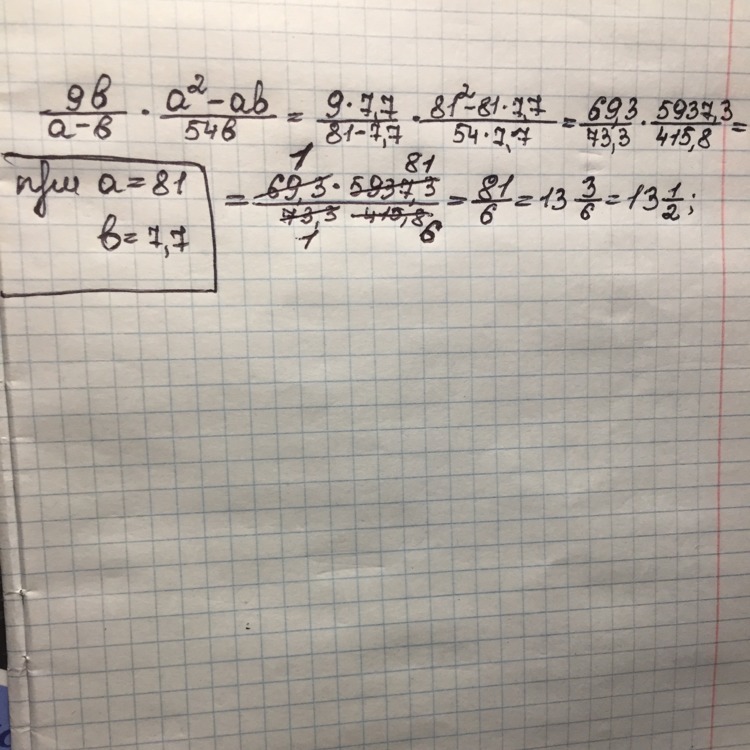 9в/(a-в) · (a²-aв)/54в = 9·7,7/(81-7,7) · (81²-81·7,7)/(54·7,7) = 69,3/73,3 · 5937,3/415,8 =
при a=81
в=7,7
1 81
= (69,3 · 5937,3)/(73,3 415,8) = 81/6 = 13 3/6 = 13 1/2;
1 6